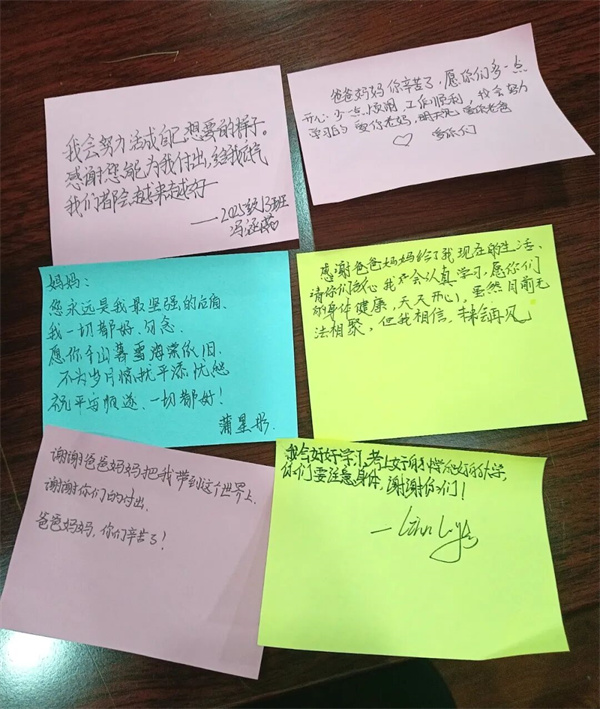 我会努力活成自己想要的样子。
感谢您能为我付出,给我底气
我们都会越来越好
——2025级13班
冯涵茹
爸爸妈妈你辛苦了,愿你们多一点
开心少一点烦恼,工作顺利,我会努力
学习的
爱你们
妈妈:
您永远是我最坚强的后盾.
我一切都好,勿念.
愿你千山暮雪海棠依旧.
不为岁月惊扰平添忧愁
祝平安顺遂、一切都好!
蒲星彤.
感谢爸爸妈妈给了我现在的生活、
请你们放心我会认真学习,愿你们
身体健康,天天开心,虽然目前无
法相聚,但我相信,未来会再见
谢谢爸爸妈妈把我带到这个世界上.
谢谢你们的付出.
爸爸妈妈,你们辛苦了!
我会好好学习,考上好的大学
你们要注意身体,谢谢你们!